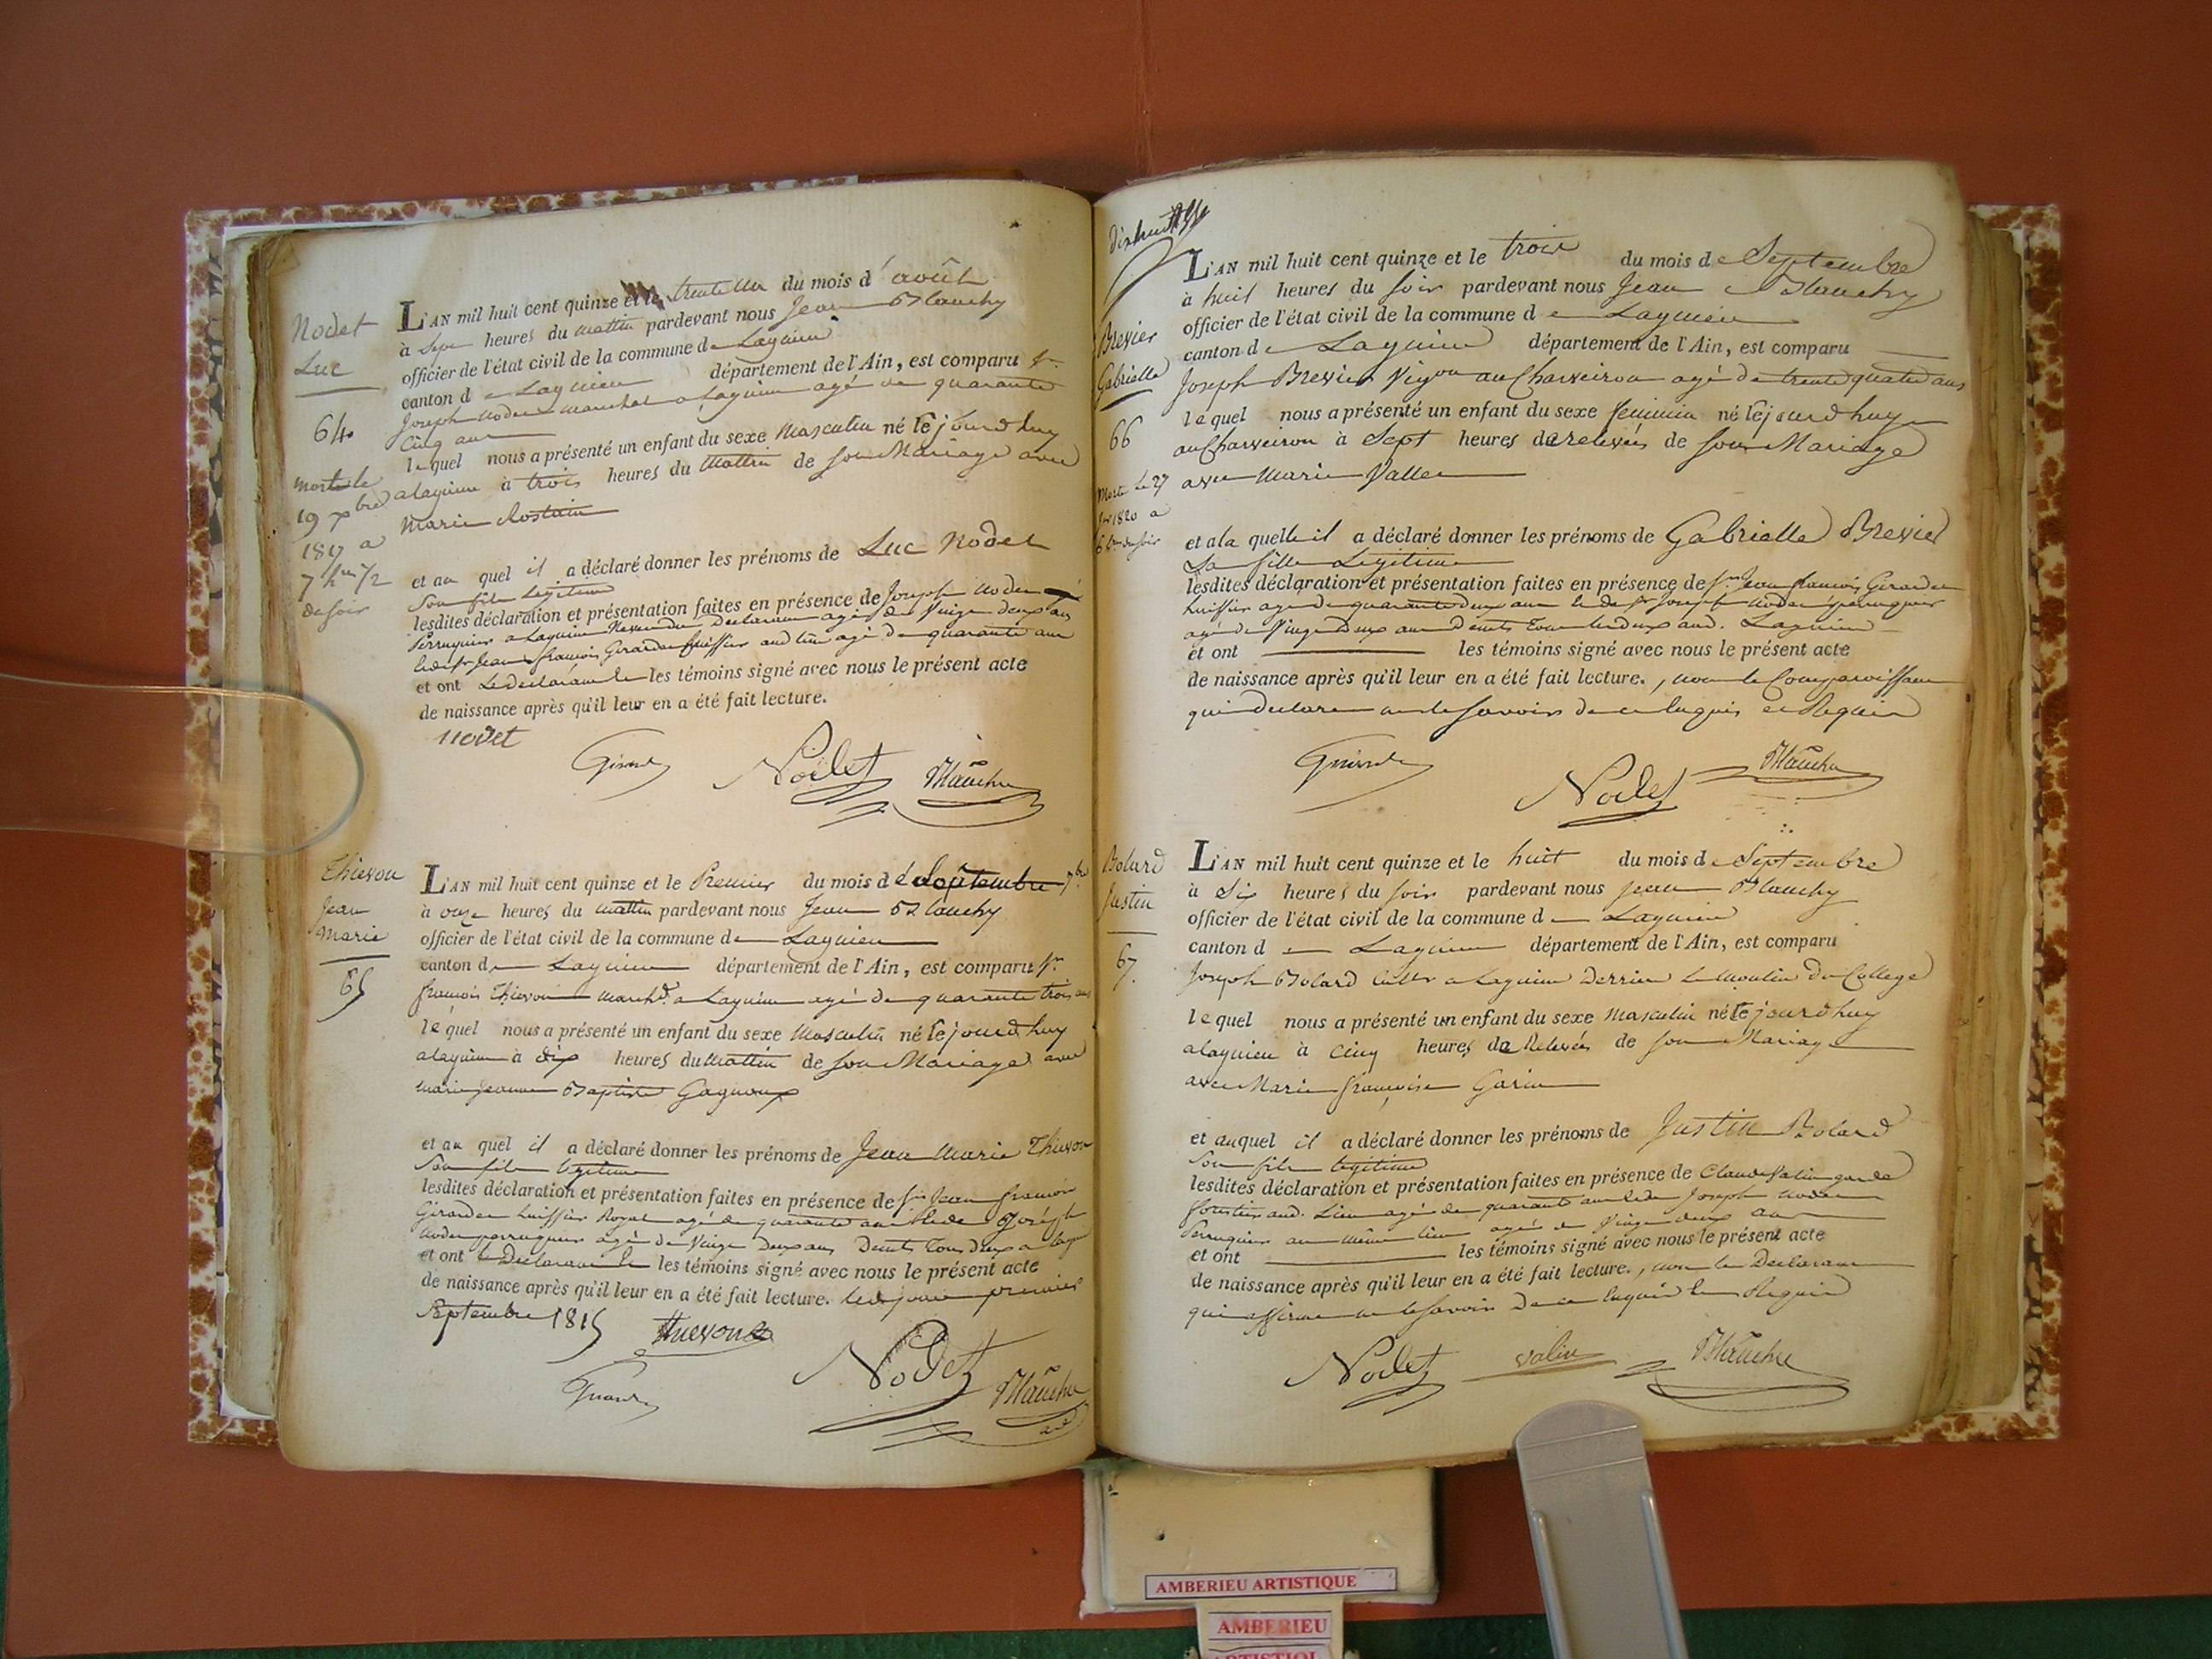 Nodet
Luc
64
morte le
19 xbre
1817 a
7 hres 1/2
du soir
L'AN mil huit cent quinze et le trente un du mois d'août
à sept heures du mattin pardevant nous Jean Blanchy
officier de l'état civil de la commune de Lagnieu
canton de Lagnieu département de l'Ain, est comparu Sr
Joseph Nodet marechal a Lagnieu agé de quarante
Cinq ans
lequel nous a présenté un enfant du sexe Masculin né le jourd'huy
a lagnieu à trois heures du Mattin de son Mariage avec
Marie Rostain
et au quel il a déclaré donner les prénoms de Luc Nodet
Son fils Legitime
lesdites déclaration et présentation faites en présence de Joseph Nodet
Perruquier a Lagnieu Neveu du Declarant agé de Vingt deux ans
Jean françois Girardet huissier aud lieu agé de quarante ans
et ont Le declarant et les témoins signé avec nous le présent acte
de naissance après qu'il leur en a été fait lecture.
nodet
Girard Nodet Blanchy
Thievon
Jean
Marie
65
L'AN mil huit cent quinze et le Premier du mois de Septembre 7bre
à onze heures du mattin pardevant nous Jean Blanchy
officier de l'état civil de la commune de Lagnieu
canton de Lagnieu département de l'Ain, est comparu Sr
françois Thievon marchd. a Lagnieu agé de quarante trois ans
lequel nous a présenté un enfant du sexe Masculin né le jourd'huy
a lagnieu à dix heures du Mattin de son Mariage avec
marie Jeanne Baptiste Gagnoux
et au quel il a déclaré donner les prénoms de Jean Marie Thievon
Son fils legitime
lesdites déclaration et présentation faites en présence de Sr Jean françois
Girardet huissier Royal agé de quarante ans et de Joseph
Nodet perruquier agé de Vingt Deux ans Demts Tous Deux a lagn
et ont le Declarant et les témoins signé avec nous le présent acte
de naissance après qu'il leur en a été fait lecture. led jour premier
Septembre 1815
Thievon
Girard Nodet Blanchy
dix huit
Brevier
Gabrielle
66
Morte le 27
1820 a
6 hres du soir
L'AN mil huit cent quinze et le trois du mois de Septembre
à huit heures du soir pardevant nous Jean Blanchy
officier de l'état civil de la commune de Lagnieu
canton de Lagnieu département de l'Ain, est comparu
Joseph Brevier Vigon au Charveiron agé de trente quatre ans
lequel nous a présenté un enfant du sexe feminin né le jourd'huy
au Charveiron à Sept heures de relevées de son Mariage
avec Marie Vallet
et a la quelle il a déclaré donner les prénoms de Gabrielle Brevier
Sa fille Legitime
lesdites déclaration et présentation faites en présence de Sr Jean françois Girardet
huissier agé de quarante deux ans et de Sr Joseph Nodet perruquier
agé de Vingt Deux ans Demts Tous les deux aud. Lagnieu
et ont les témoins signé avec nous le présent acte
de naissance après qu'il leur en a été fait lecture., non le Comparoissant
qui declare ne le savoir de ce enquis et Requis
Girard
Nodet
Blanchy
Bolard
Justin
67.
L'AN mil huit cent quinze et le huit du mois de Septembre
à Six heures du soir pardevant nous jean Blanchy
officier de l'état civil de la commune de Lagnieu
canton de Lagnieu département de l'Ain, est comparu
Joseph Bolard cultr a Lagnieu Derrier le Moulin du College
lequel nous a présenté un enfant du sexe masculin né le jourd'huy
a lagnieu à cinq heures de Relevées de son Mariage
avec Marie françoise Garin
et auquel il a déclaré donner les prénoms de Justin Bolard
Son fils legitime
lesdites déclaration et présentation faites en présence de Claude Valin garde
forestier aud. Lieu agé de quarante ans et de Joseph Nodet
Perruquier au même lieu agé de Vingt deux ans
et ont les témoins signé avec nous le présent acte
de naissance après qu'il leur en a été fait lecture., non le Declarant
qui affirme ne le savoir De ce Enquis et Requis
Nodet valin Blanchy
AMBERIEU ARTISTIQUE
AMBERIEU
ARTISTIQU